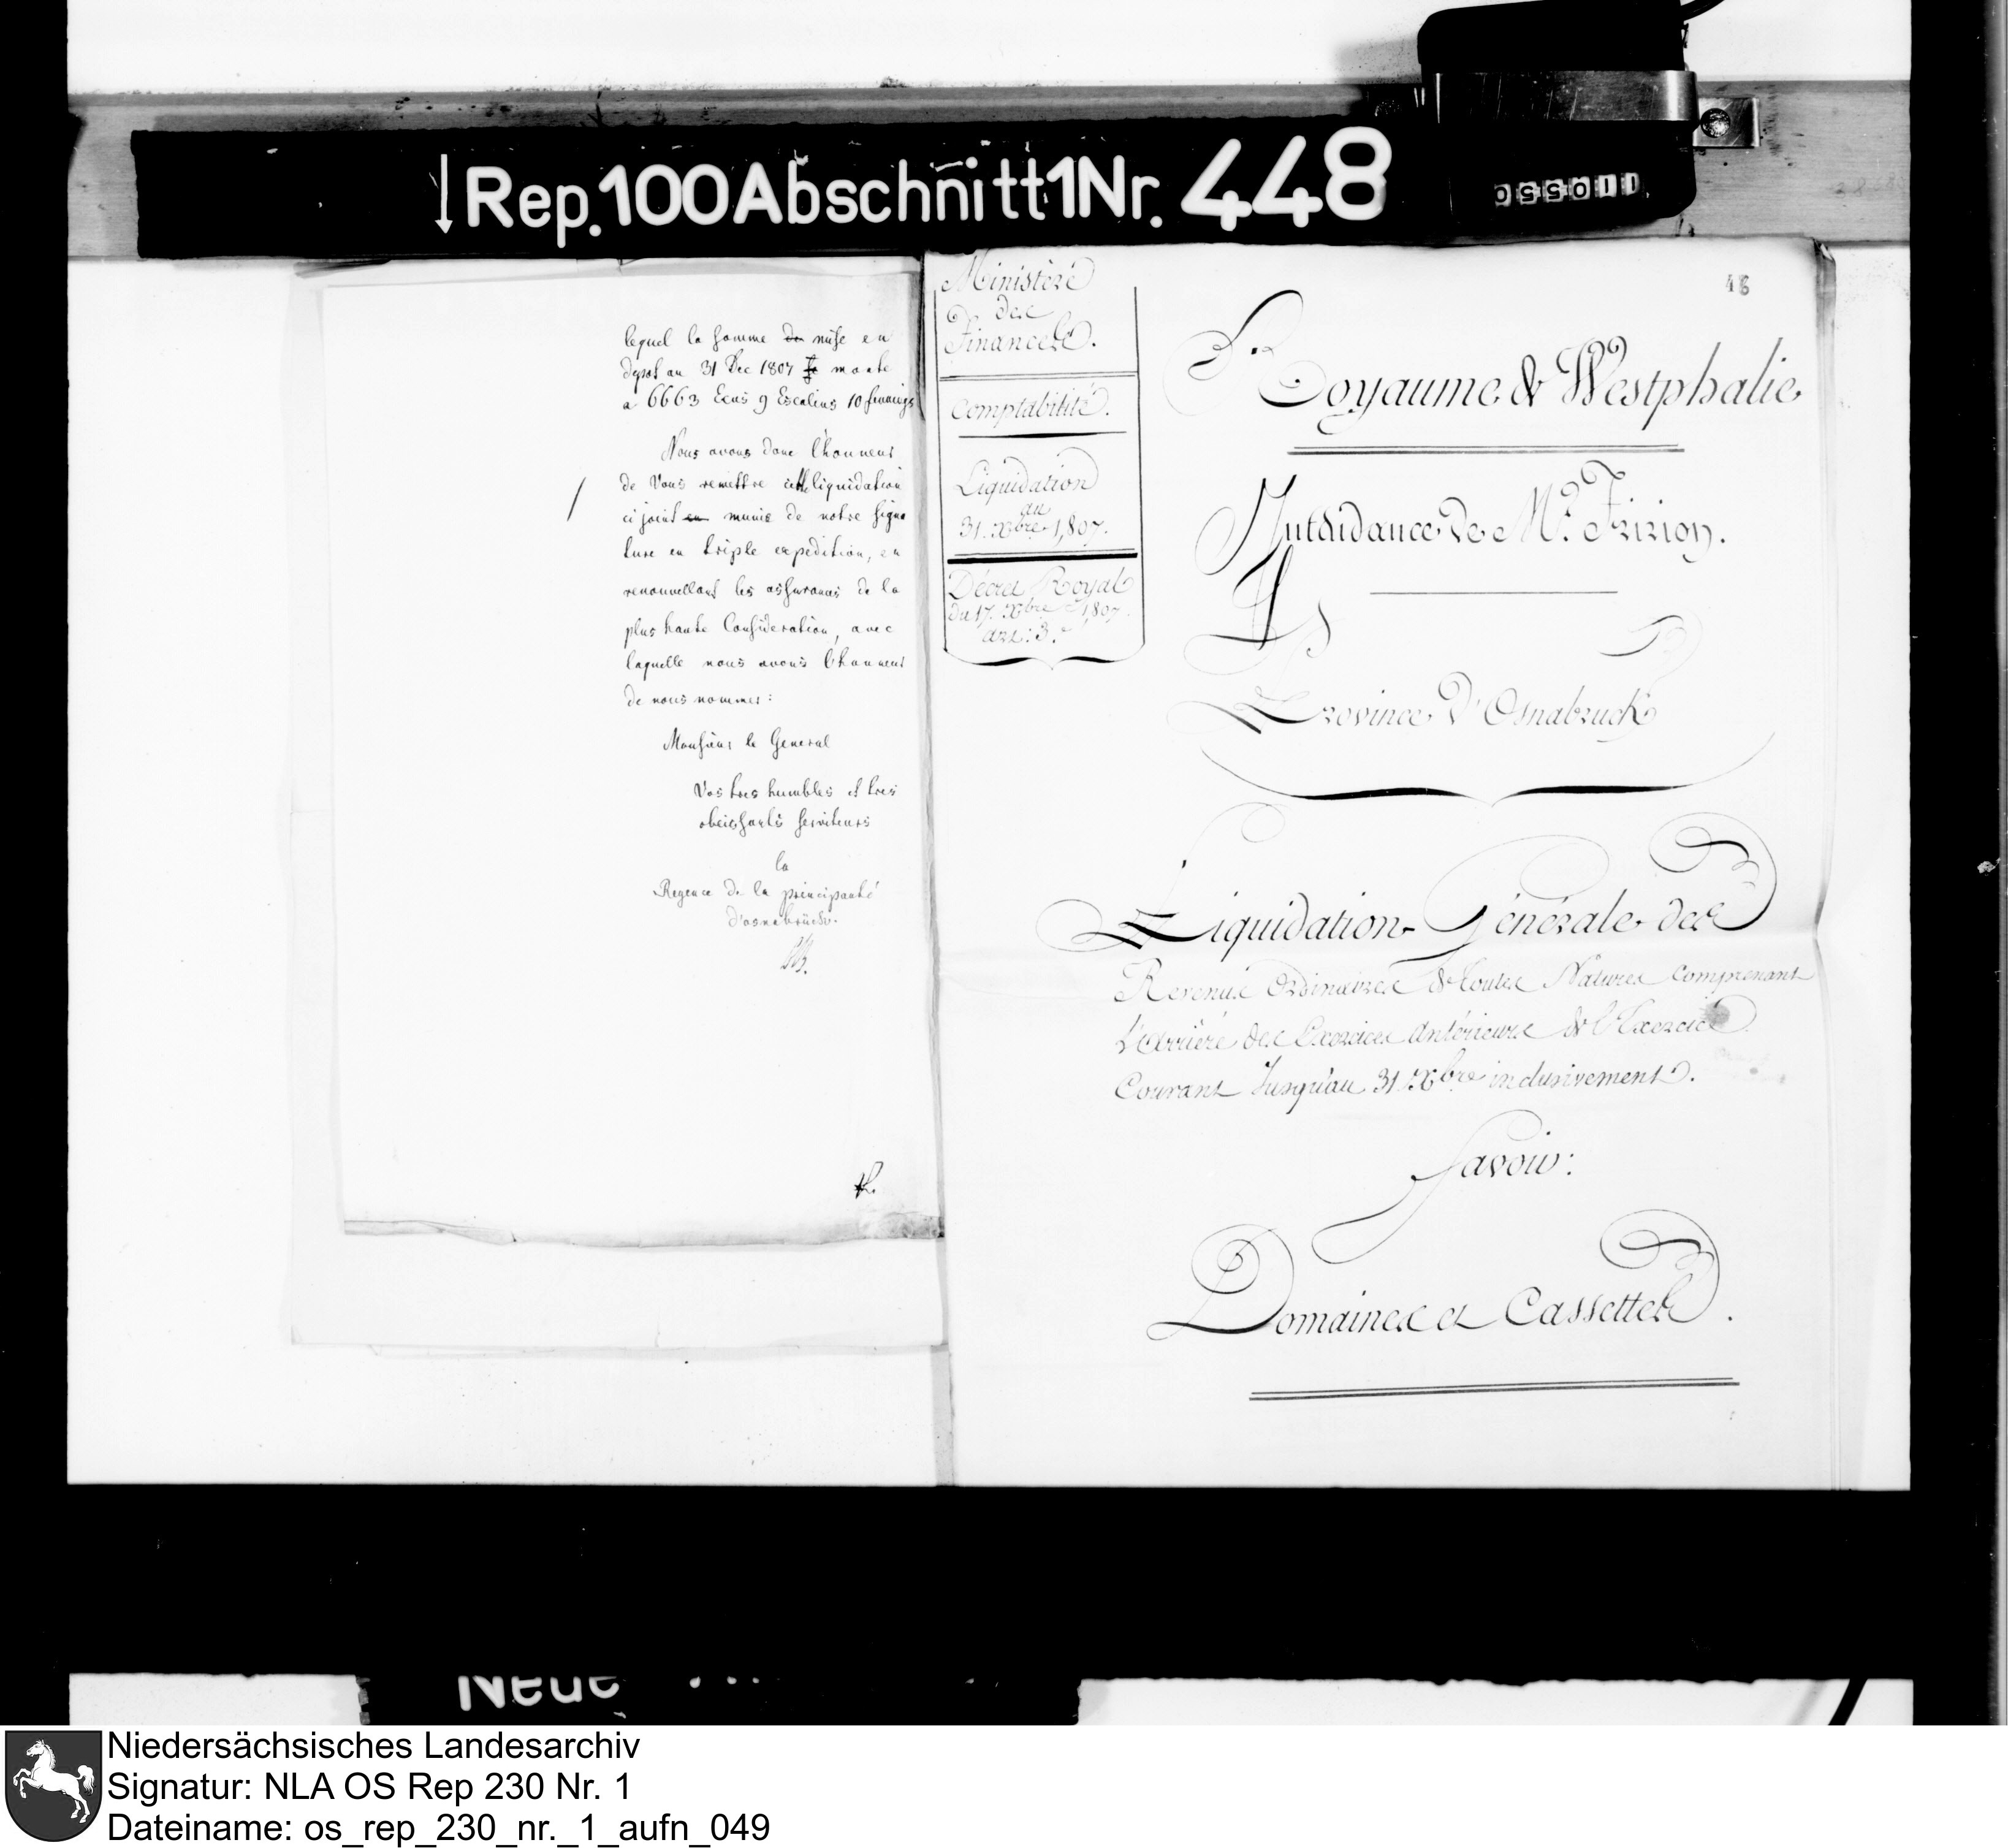 ↓Rep.100Abschnitt1Nr.448
110550
lequel la somme de mise en
depot au 31 Dec 1807 se monte
a 6663 Ecus 9 Escalins 10 finnings
Nous avons donc l'honneur
de Vous remettre cette liquidation
/ ci joint en munie de notre signa
ture en triple expedition, en
renouvellant les assurances de la
plus haute Consideration, avec
laquelle nous avons l'honneur
de nous nommer:
Monsieur le General
Vos tres humbles et tres
obeissants serviteurs
la
Regence de la principauté
d'osnabrück.
R.
Ministère
des
Finances.
Comptabilité.
Liquidation
au
31. Xbre 1,807.
Décret Royal
du 17. Xbre 1,807.
art: 3.e
48
Royaume de Westphalie
Intendance de Mr. Fririon.
Province d'Osnabruck
Liquidation Générale des
Revenus Ordinaires de toutes Natures comprenant
L'Arriéré des Exercices Antérieurs & l'Exercice
Courant Jusqu'au 31. Xbre inclusivement.
Savoir:
Domaines et Cassettes.
Neue
Niedersächsisches Landesarchiv
Signatur: NLA OS Rep 230 Nr. 1
Dateiname: os_rep_230_nr._1_aufn_049